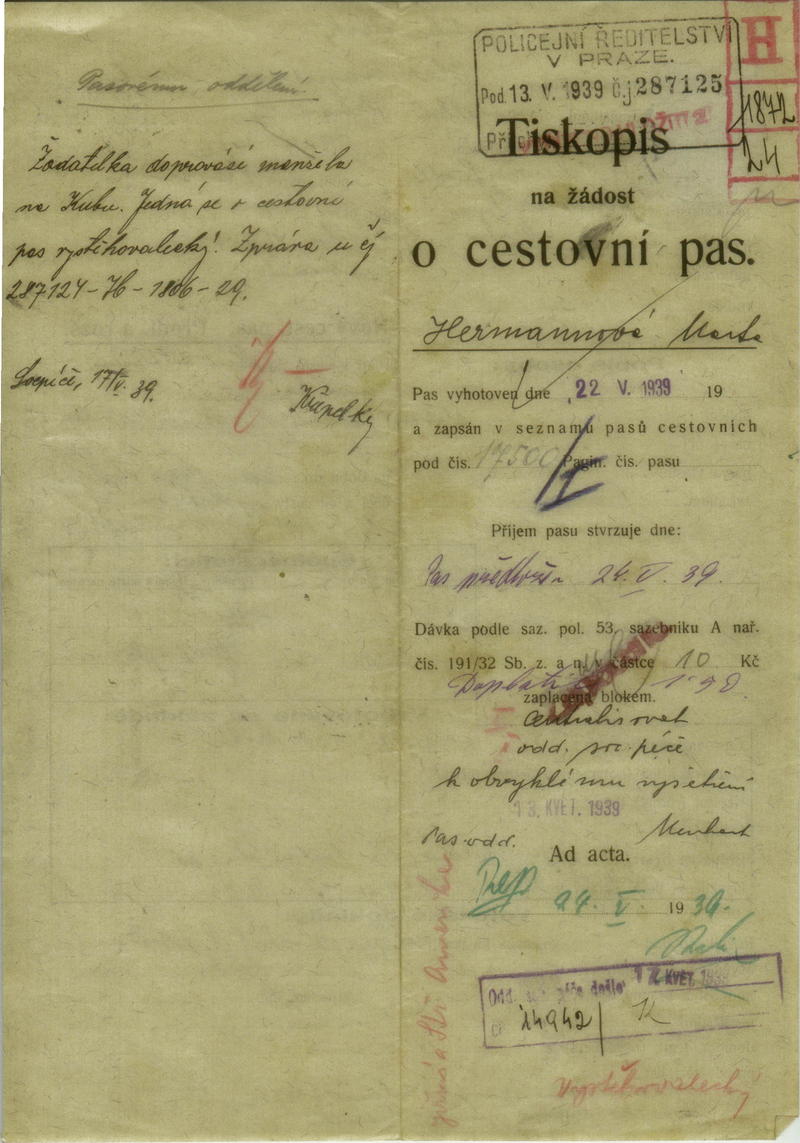 Pasovému oddělení.
Žadatelka doprovází manžela
na Kubu. Jedná se o cestovní
pas vystěhovalecký. Zpráva u čj
287124-H-1806-29.
17/V. 39.
POLICEJNÍ ŘEDITELSTVÍ
V PRAZE.
Pod. 13. V. 1939 Č.j 287125
H
1872
24
Tiskopis
na žádost
o cestovní pas.
Hermannová Marta
Pas vyhotoven dne 22 V. 1939 19
a zapsán v seznamu pasů cestovních
pod čís. 17500 Pagin. čís. pasu
Příjem pasu stvrzuje dne:
Pas 24. V. 39.
Dávka podle saz. pol. 53, sazebniku A nař.
čís. 191/32 Sb. z. a n. v částce 10 Kč
zaplacena blokem.
odd. soc péče
k obvyklému vyšetření
13. KVĚT. 1939
Pas. odd.
Ad acta.
24. V. 1939.
Odd. soc. péče došlo 17. KVĚT. 1939
14942/ K
Vystěhovalecký